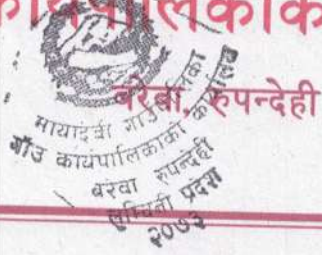 कार्यपालिकाको
बरेवा, रुपन्देही
मायादेवी गाउँपालिका
गाँउ कार्यपालिकाको कार्यालय
बरेवा रुपन्देही
लुम्बिनी प्रदेश
२०७३